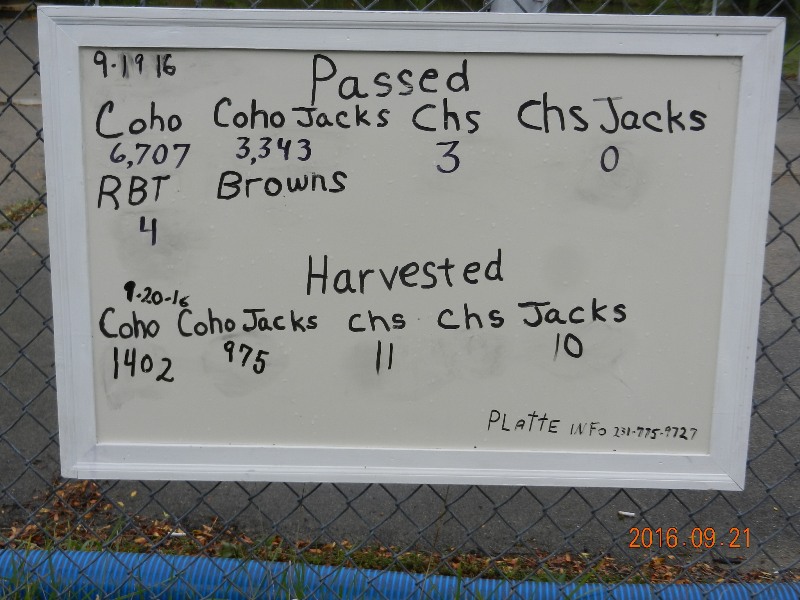 9-19 16
Passed
Coho Coho Jacks Chs Chs Jacks
6,707 3,343 3 0
RBT Browns
4
Harvested
9-20-16
Coho Coho Jacks chs chs Jacks
1402 975 11 10
PLAttE INFo 231-775-9727
2016.09.21